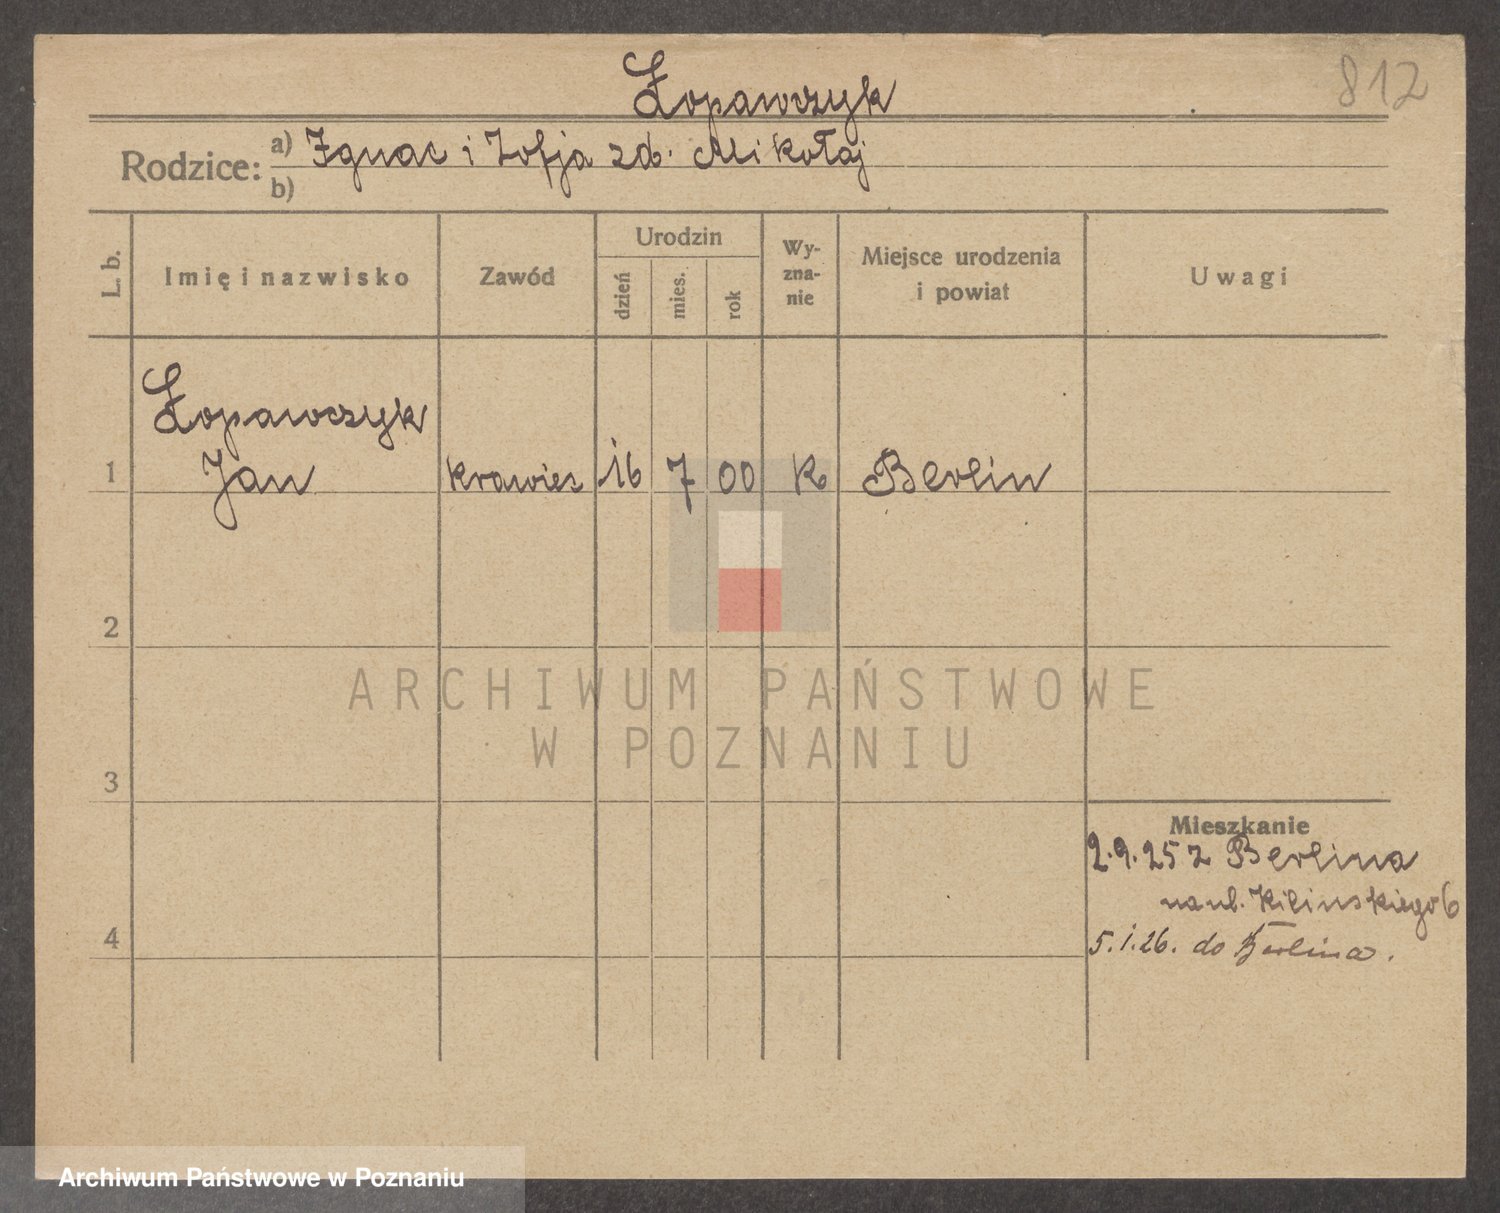 812
Łopawczyk
Rodzice: a) Ignac i Zofja zd. Mikołaj
b)
L. b. Imię i nazwisko Zawód Urodzin dzień mies. rok Wy-zna-nie Miejsce urodzenia i powiat Uwagi
Łopawczyk
1 Jan krawiec 16 7 00 k Berlin
2
ARCHIWUM PAŃSTWOWE
W POZNANIU
3
Mieszkanie
2.9.25 z Berlina
na ul. Kilinskiego 6
4
5.1.26. do Berlina.
Archiwum Państwowe w Poznaniu